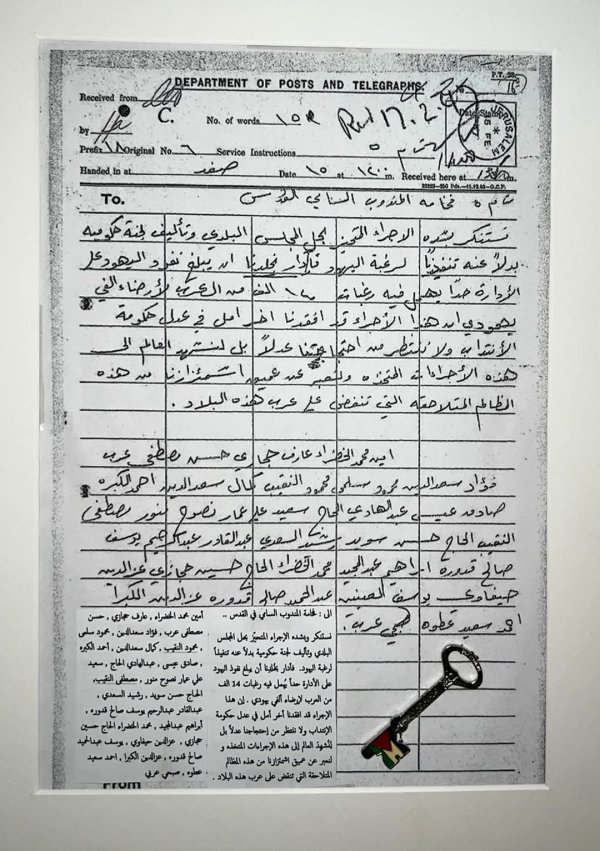 P.T. 28
DEPARTMENT OF POSTS AND TELEGRAPHS.
Received from
C.
No. of words 158
Date Stamp
JERUSALEM
15 FE
by
Prefix Original No. 6 Service Instructions
Handed in at صفد Date 15 at 1200 m. Received here at m.
To. فخامة المندوب السامي القدس
نستنكر بشده الاجراء المتحيز بحل المجلس البلدي وتأليف لجنة حكوميه
بدلاً عنه تنفيذاً لرغبة اليهود فآذار بخلدنا ان يبلغ نفوذ اليهود على
الأدارة حداً يهمل فيه رغبات الف من العرب لأرضاء الفي
يهودي ان هذا الأجراء قد افقدنا اخر امل في عدل حكومة
الأنتداب ولا ننتظر من احتجاجتنا عدلاً بل لنشهد العالم الى
هذه الأجراءات المتخذه ولنعبر عن عميق اشمئزازنا من هذه
المظالم المتلاحقه التي تنقض على عرب هذه البلاد .
امين محمد الخضراء عارف حجازي حسن مصطفى عرب
فؤاد سعدالدين محمود سلمى محمود النقيب كمال سعدالدين احمد الكبره
صادق عيسى عبدالهادي الحاج سعيد علي عمار نصوح منور مصطفى
النقيب الحاج حسن سويد رشيد السعدي عبدالقادر عبدالرحيم يوسف
صالح قدوره ابراهيم عبدالمجيد محمد الخضراء الحاج حسين حجازي عزالدين
حيفاوي يوسف عبدالحميد صالح قدوره عزالدين الكبرا
احمد سعيد عطوه صبحي عربي .
الى : لفخامة المندوب السامي في القدس ..
نستنكر وبشده الإجراء المتحيّز بحل المجلس
البلدي وتأليف لجنة حكومية بدلاً عنه تنفيذاً
لرغبة اليهود. فآدار بخلدنا أن يبلغ نفوذ اليهود
على الإدارة حداً يُهمل فيه رغبات 14 الف
من العرب لإرضاء ألفي يهودي . إن هذا
الإجراء قد افقدنا أخر أمل في عدل حكومة
الإنتداب ولا ننتظر من إحتجاجنا عدلاً بل
لنُشهد العالم إلى هذه الإجراءات المتخذه و
لنعبر عن عميق اشمئزازنا من هذه المظالم
المتلاحقة التي تنقض على عرب هذه البلاد .
أمين محمد الخضراء , عارف حجازي , حسن
مصطفى عرب , فؤاد سعدالدين , محمود سلمى
, محمود النقيب , كمال سعدالدين , أحمد الكبره
, صادق عيسى , عبدالهادي الحاج , سعيد
علي عمار نصوح منور , مصطفى النقيب,
الحاج حسن سويد , رشيد السعدي ,
عبدالقادر عبدالرحيم يوسف صالح قدوره ,
أبراهيم عبدالمجيد , محمد الخضراء الحاج حسين
حجازي , عزالدين حيفاوي , يوسف عبدالحميد
صالح قدوره , عزالدين الكبرا , احمد سعيد
عطوه , صبحي عربي
From